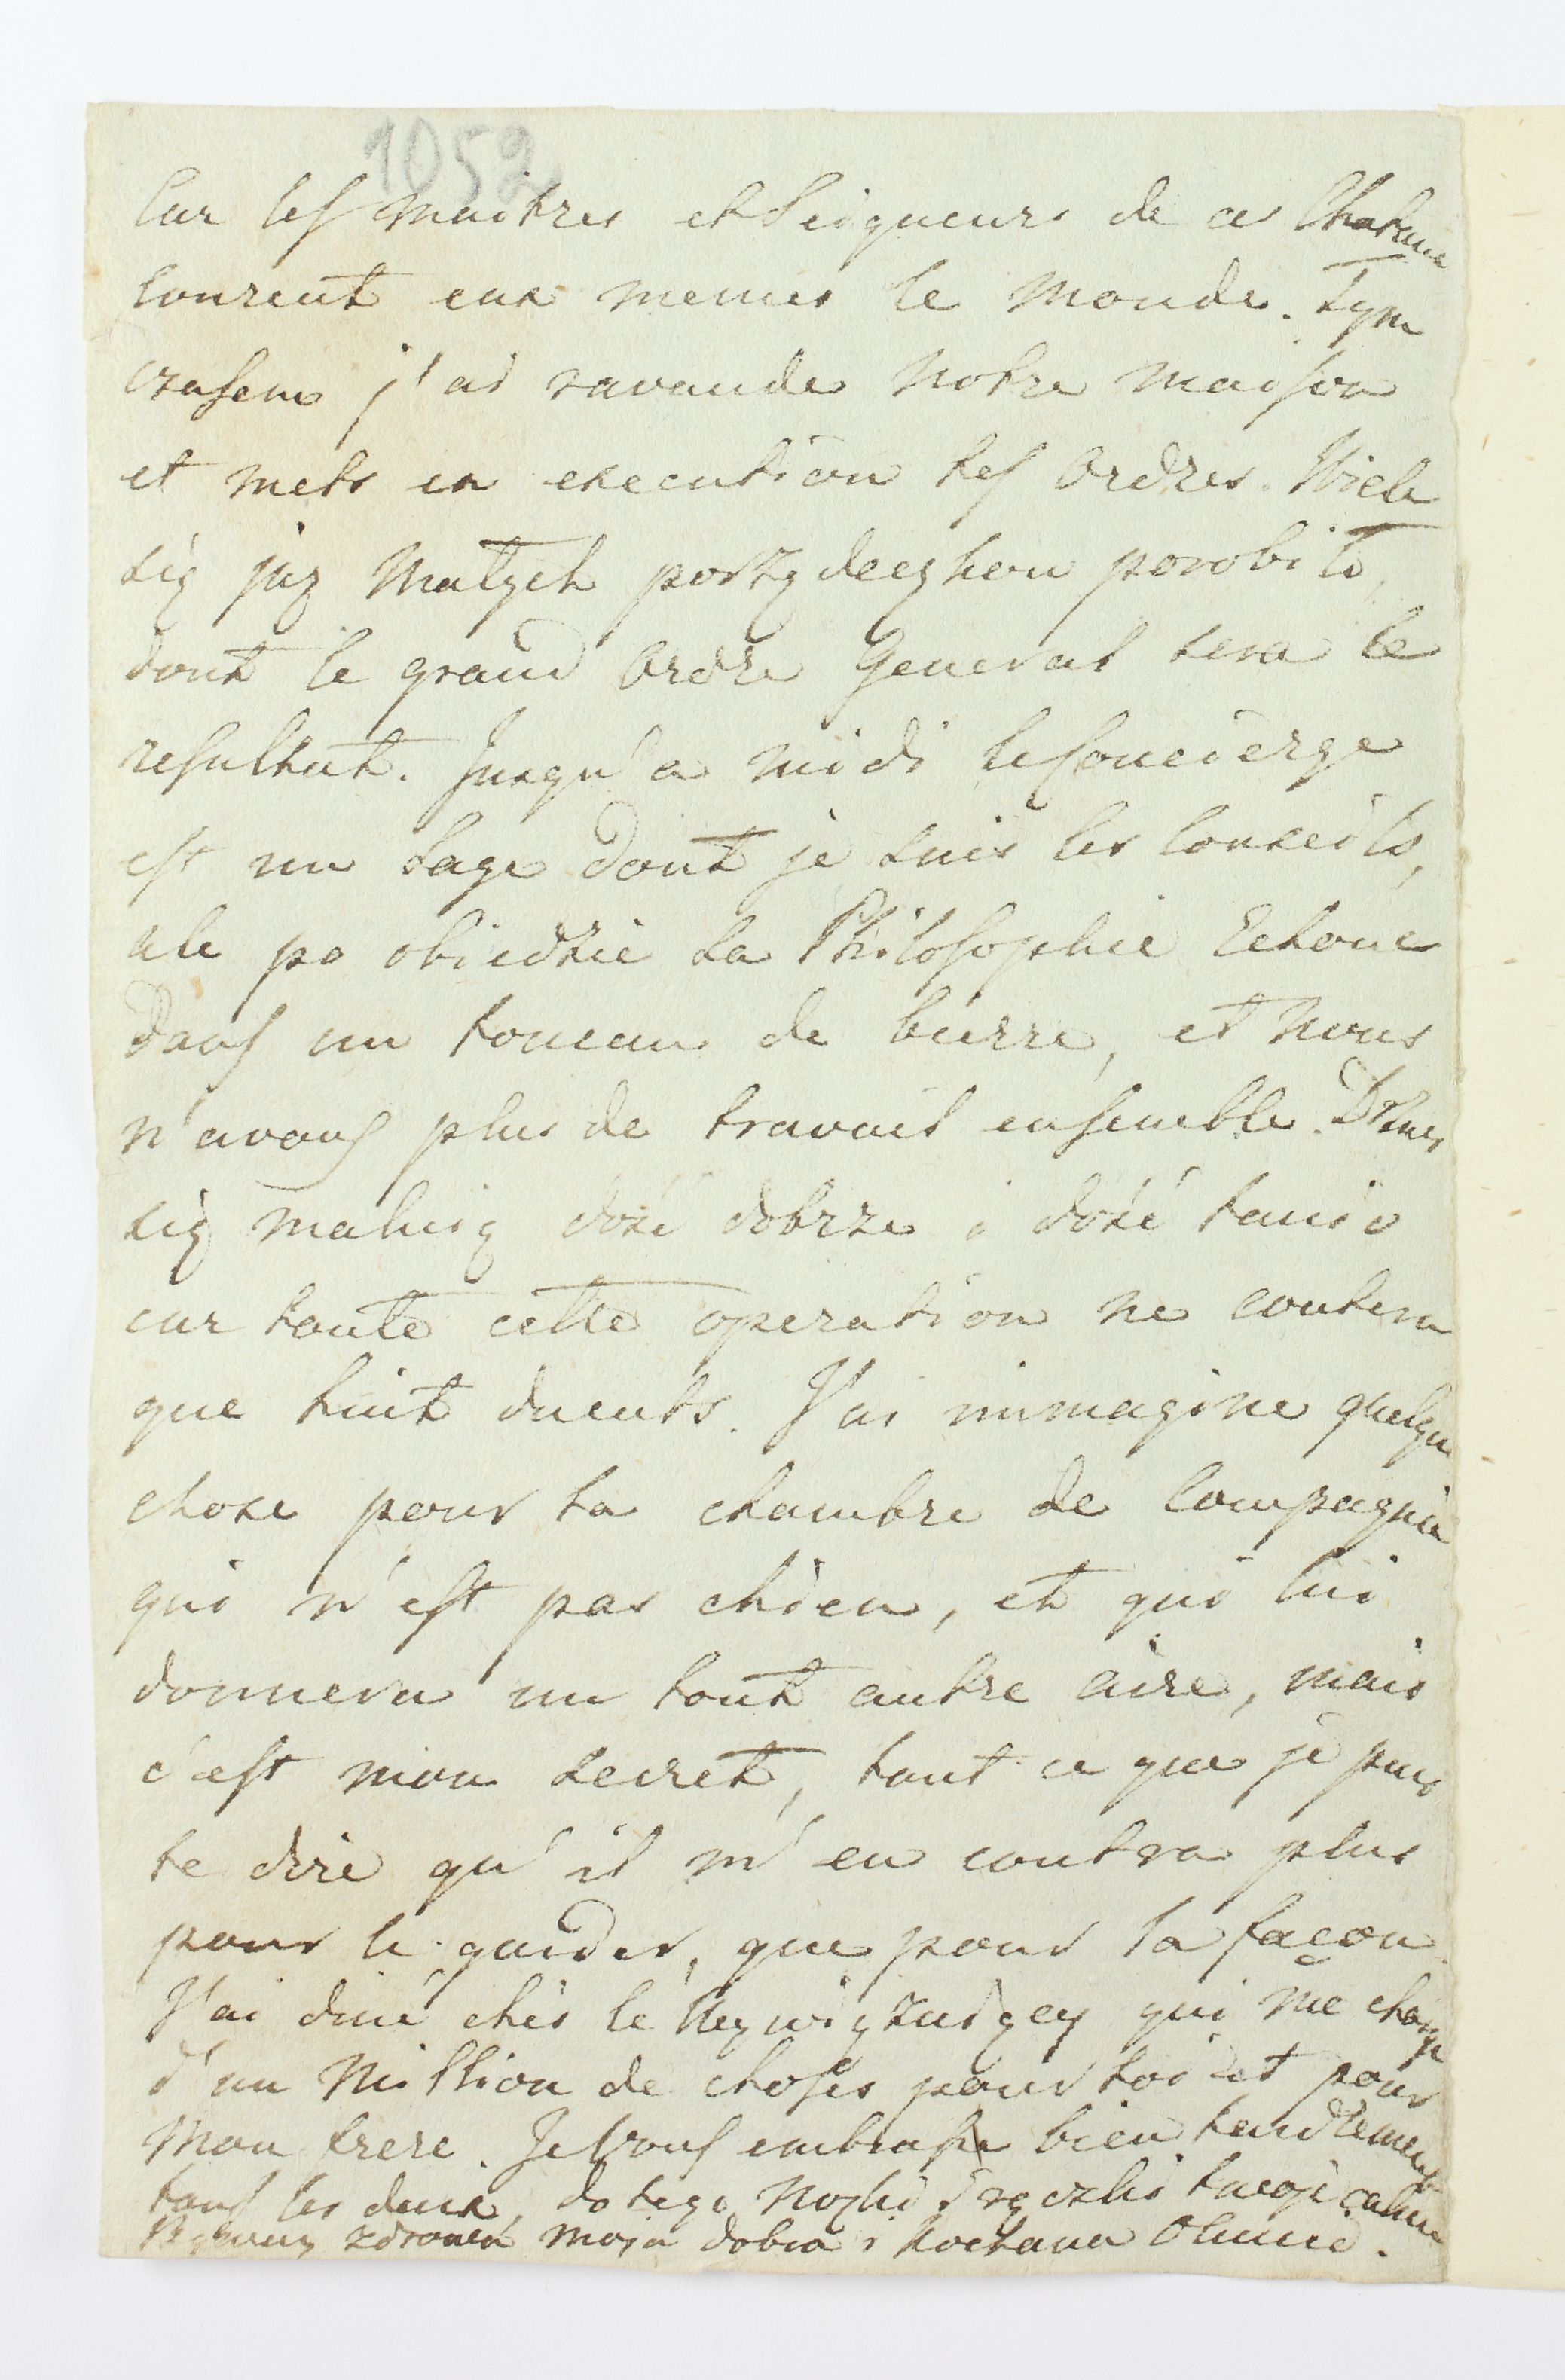 1052
Car les maitres et Seigneurs de ces Chateaux
Courent eux memes le monde. Tym
czasem j'ai ravaudé notre maison
et mets en execution tes Ordres. Wiele
się już małych porządeczkow porobiło,
dont le grand Ordre General sera le
resultat. Jusqu'a midi le Concierge
est un Sage dont je suis les Conseils,
ale po obiedzie sa Philosophie Echoue
dans un toneau de bierre, et nous
n'avons plus de travail ensemble. Drzwi
się maluią dosć dobrze i dosć tanio
car toute cette operation ne coutera
que huit ducats. J'ai immaginé quelque
chose pour ta chambre de Compagnie
qui n'est pas chien, et qui lui
donnera un tout autre aire, mais
c'est mon secret, tout ce que je puis
te dire qu'il m'en coutra plus
pour le garder, que pour la façon.
J'ai diné chés le qui me charge
d'un Million de choses pour toi et pour
Mon frere. Je Vous embrasse bien tendrement
tous les deux, do tego Nozki i rączki twoje całuię
Bądz zdrowa moja dobra i kochana Olunia.